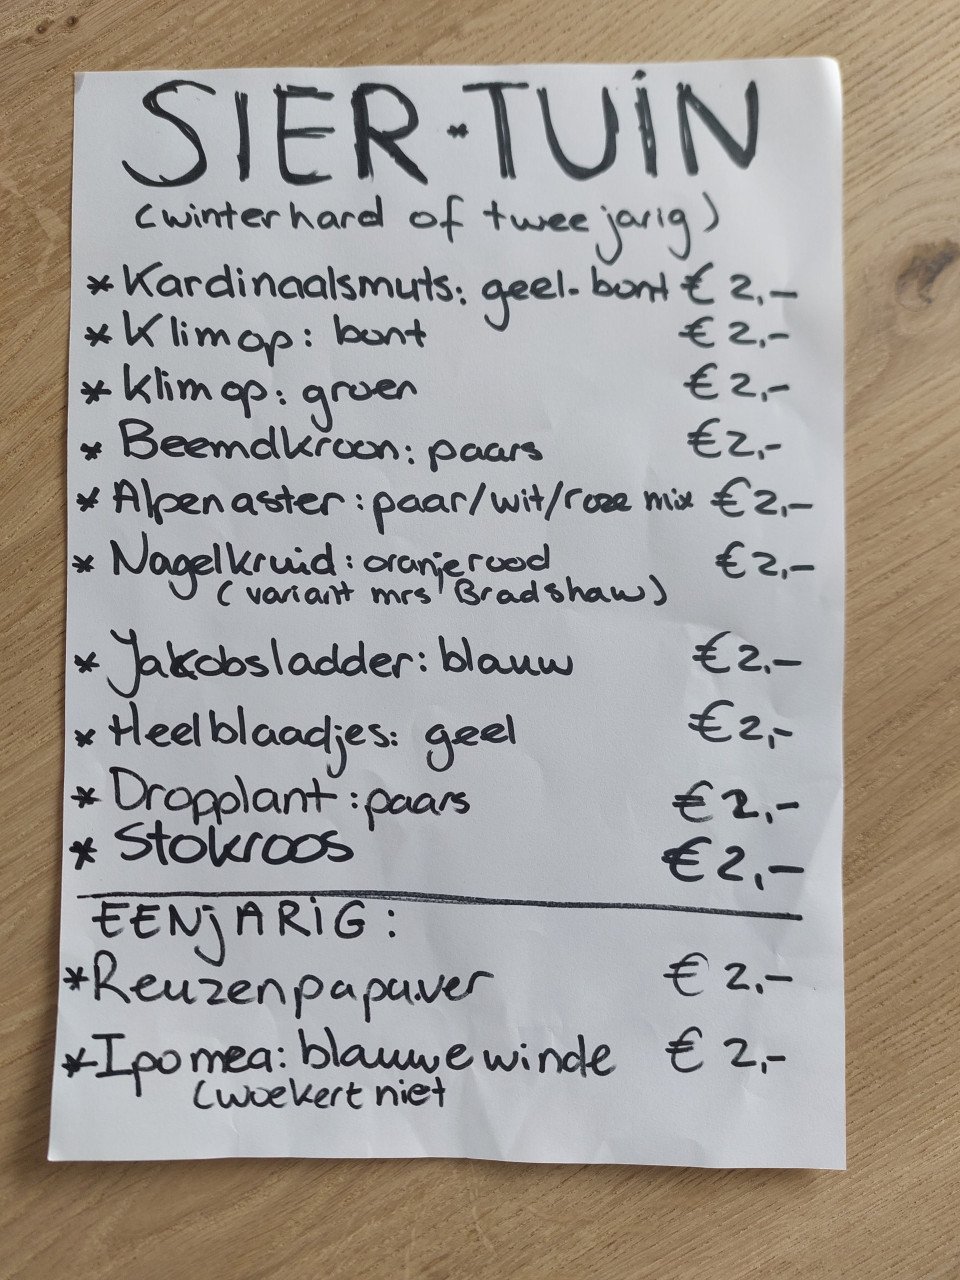 SIER-TUIN
(winterhard of tweejarig)
* Kardinaalsmuts: geel-bont € 2,-
* Klimop: bont € 2,-
* Klimop: groen € 2,-
* Beemdkroon: paars € 2,-
* Alpenaster: paar/wit/roze mix € 2,-
* Nagelkruid: oranjerood € 2,-
(variant mrs Bradshaw)
* Jakobsladder: blauw € 2,-
* Heelblaadjes: geel € 2,-
* Dropplant: paars € 2,-
* Stokroos € 2,-
EENjARIG:
* Reuzenpapaver € 2,-
* Ipomea: blauwe winde € 2,-
(woekert niet